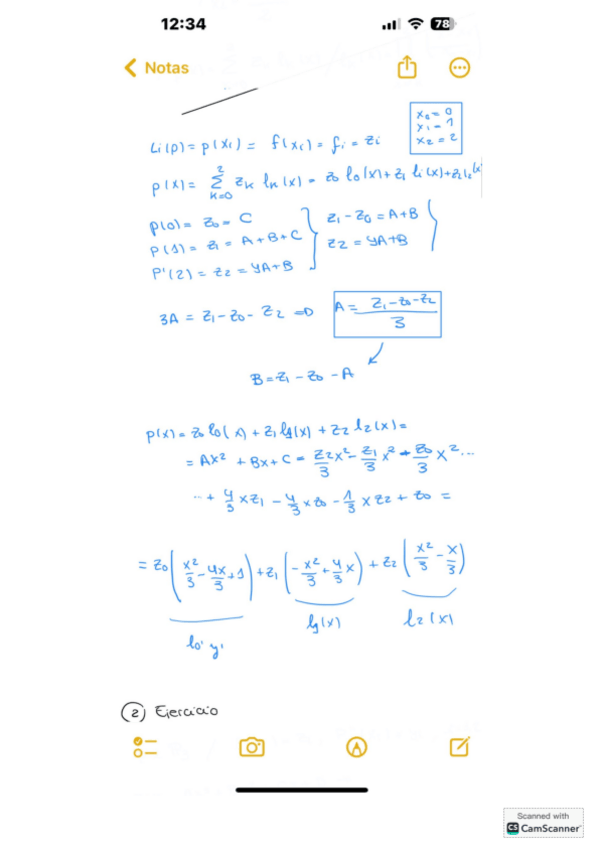 12:34
78
Notas
x₀ = 0
x₁ = 1
x₂ = 2
Li(p) = p(xi) = f(xi) = fi = zi
p(x) = Σ_{k=0}^{2} zk lk(x) = z₀ l₀(x) + z₁ l₁(x) + z₂ l₂(x)
p(0) = z₀ = C
p(1) = z₁ = A + B + C
p'(2) = z₂ = 4A + B
z₁ - z₀ = A + B
z₂ = 4A + B
3A = z₁ - z₀ - z₂ ⇒ A = (z₁ - z₀ - z₂)/3
B = z₁ - z₀ - A
p(x) = z₀ l₀(x) + z₁ l₁(x) + z₂ l₂(x) =
= Ax² + Bx + C = z₂/3 x² - z₁/3 x² + z₀/3 x² ...
... + 4/3 x z₁ - 4/3 x z₀ - 1/3 x z₂ + z₀ =
= z₀ (x²/3 - 4x/3 + 1) + z₁ (-x²/3 + 4/3 x) + z₂ (x²/3 - x/3)
l₁(x)
l₂(x)
② Ejercicio
Scanned with
CS CamScanner